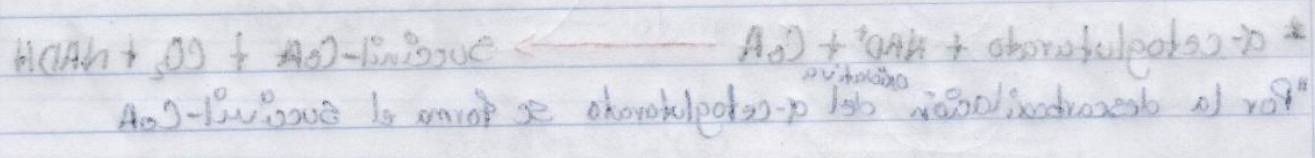 * α-cetoglutarato + NAD⁺ + CoA → Succinil-CoA + CO₂ + NADH
"Por la descarboxilación oxidativa del α-cetoglutarato se forma el succinil-CoA